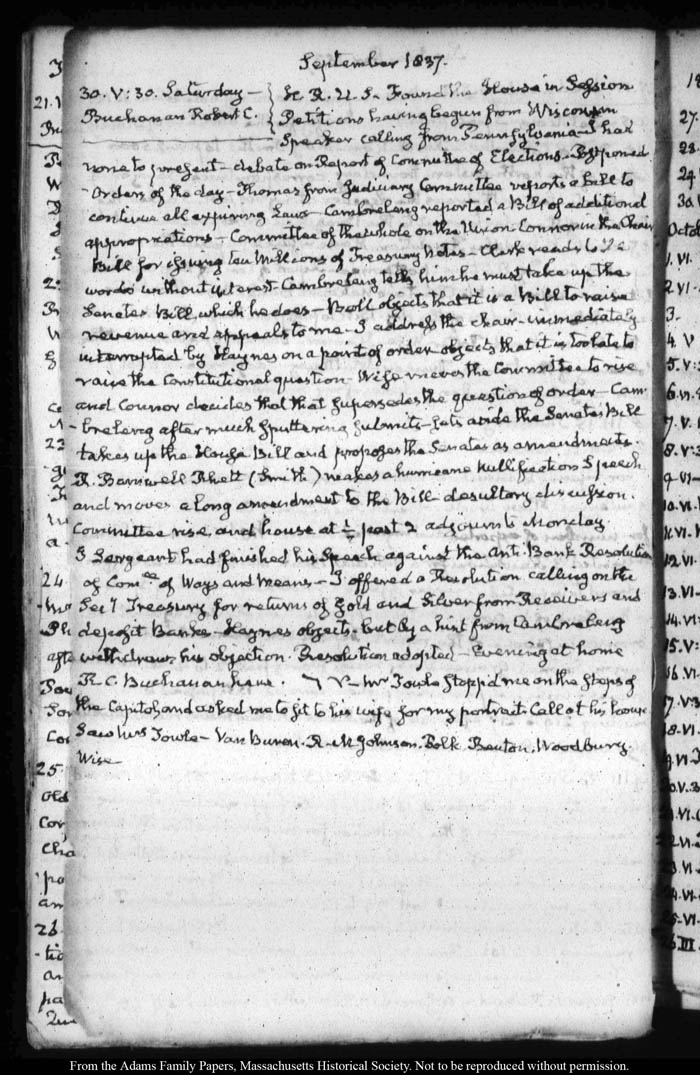 September 1837.
30. V: 30. Saturday — H. R. U. S. Found the House in Session
Buchanan Robert C. Petitions having begun from Wisconsin
Speaker calling from Pennsylvania — I had
none to present — debate on Report of Committee of Elections. Postponed
Orders of the day — Thomas from Judiciary Committee reports a bill to
continue all expiring Laws — Cambreleng reported a Bill of additional
appropriations — Committee of the whole on the Union. Connor in the Chair
Bill for issuing ten Millions of Treasury Notes — Clerk reads to the
words without interest. Cambreleng tells him he must take up the
Senate's Bill, which he does — Bell objects that it is a Bill to raise
revenue and appeals to me — I address the chair — immediately
interrupted by Haynes on a point of order objects that it is too late to
raise the Constitutional question. Wise moves the Committee to rise
and Connor decides that that supersedes the question of order — Cam-
-breleng after much sputtering submits — sets aside the Senate's Bill
takes up the House Bill and proposes the Senates as amendments.
R. Barnwell Rhett (Smith) makes a hurricane nullification Speech
and moves a long amendment to the Bill desultory discussion.
Committee rise, and house at ½ past 2 adjourn to Monday
Sergeant had finished his Speech against the Anti-Bank Resolution
of Comee of Ways and Means — I offered a Resolution calling on the
Secy Treasury for returns of Gold and Silver from Receivers and
deposit Banks — Haynes objects. but by a hint from Cambreleng
withdraws his objection. Resolution adopted — Evening at home
R. C. Buchanan here. Mr Towle stopp'd me on the steps of
the Capitol, and asked me to sit to his wife for my portrait. Call at his house
Saw Mrs Towle — Van Buren. R. M Johnson. Polk, Benton, Woodbury
Wise
21.
24.
25
26.
27.
28.
24
30.
Octob
1. VI.
2 VI
3.
4. V
5. V:
From the Adams Family Papers, Massachusetts Historical Society. Not to be reproduced without permission.